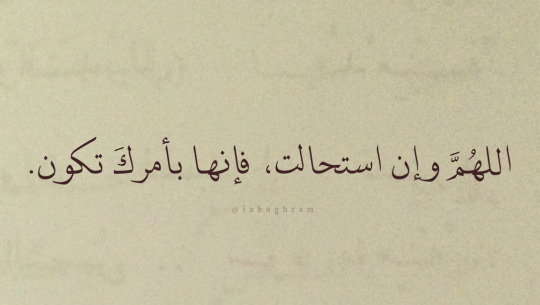 اللهُمَّ وإن استحالت، فإنها بأمركَ تكون.
@iaboghram